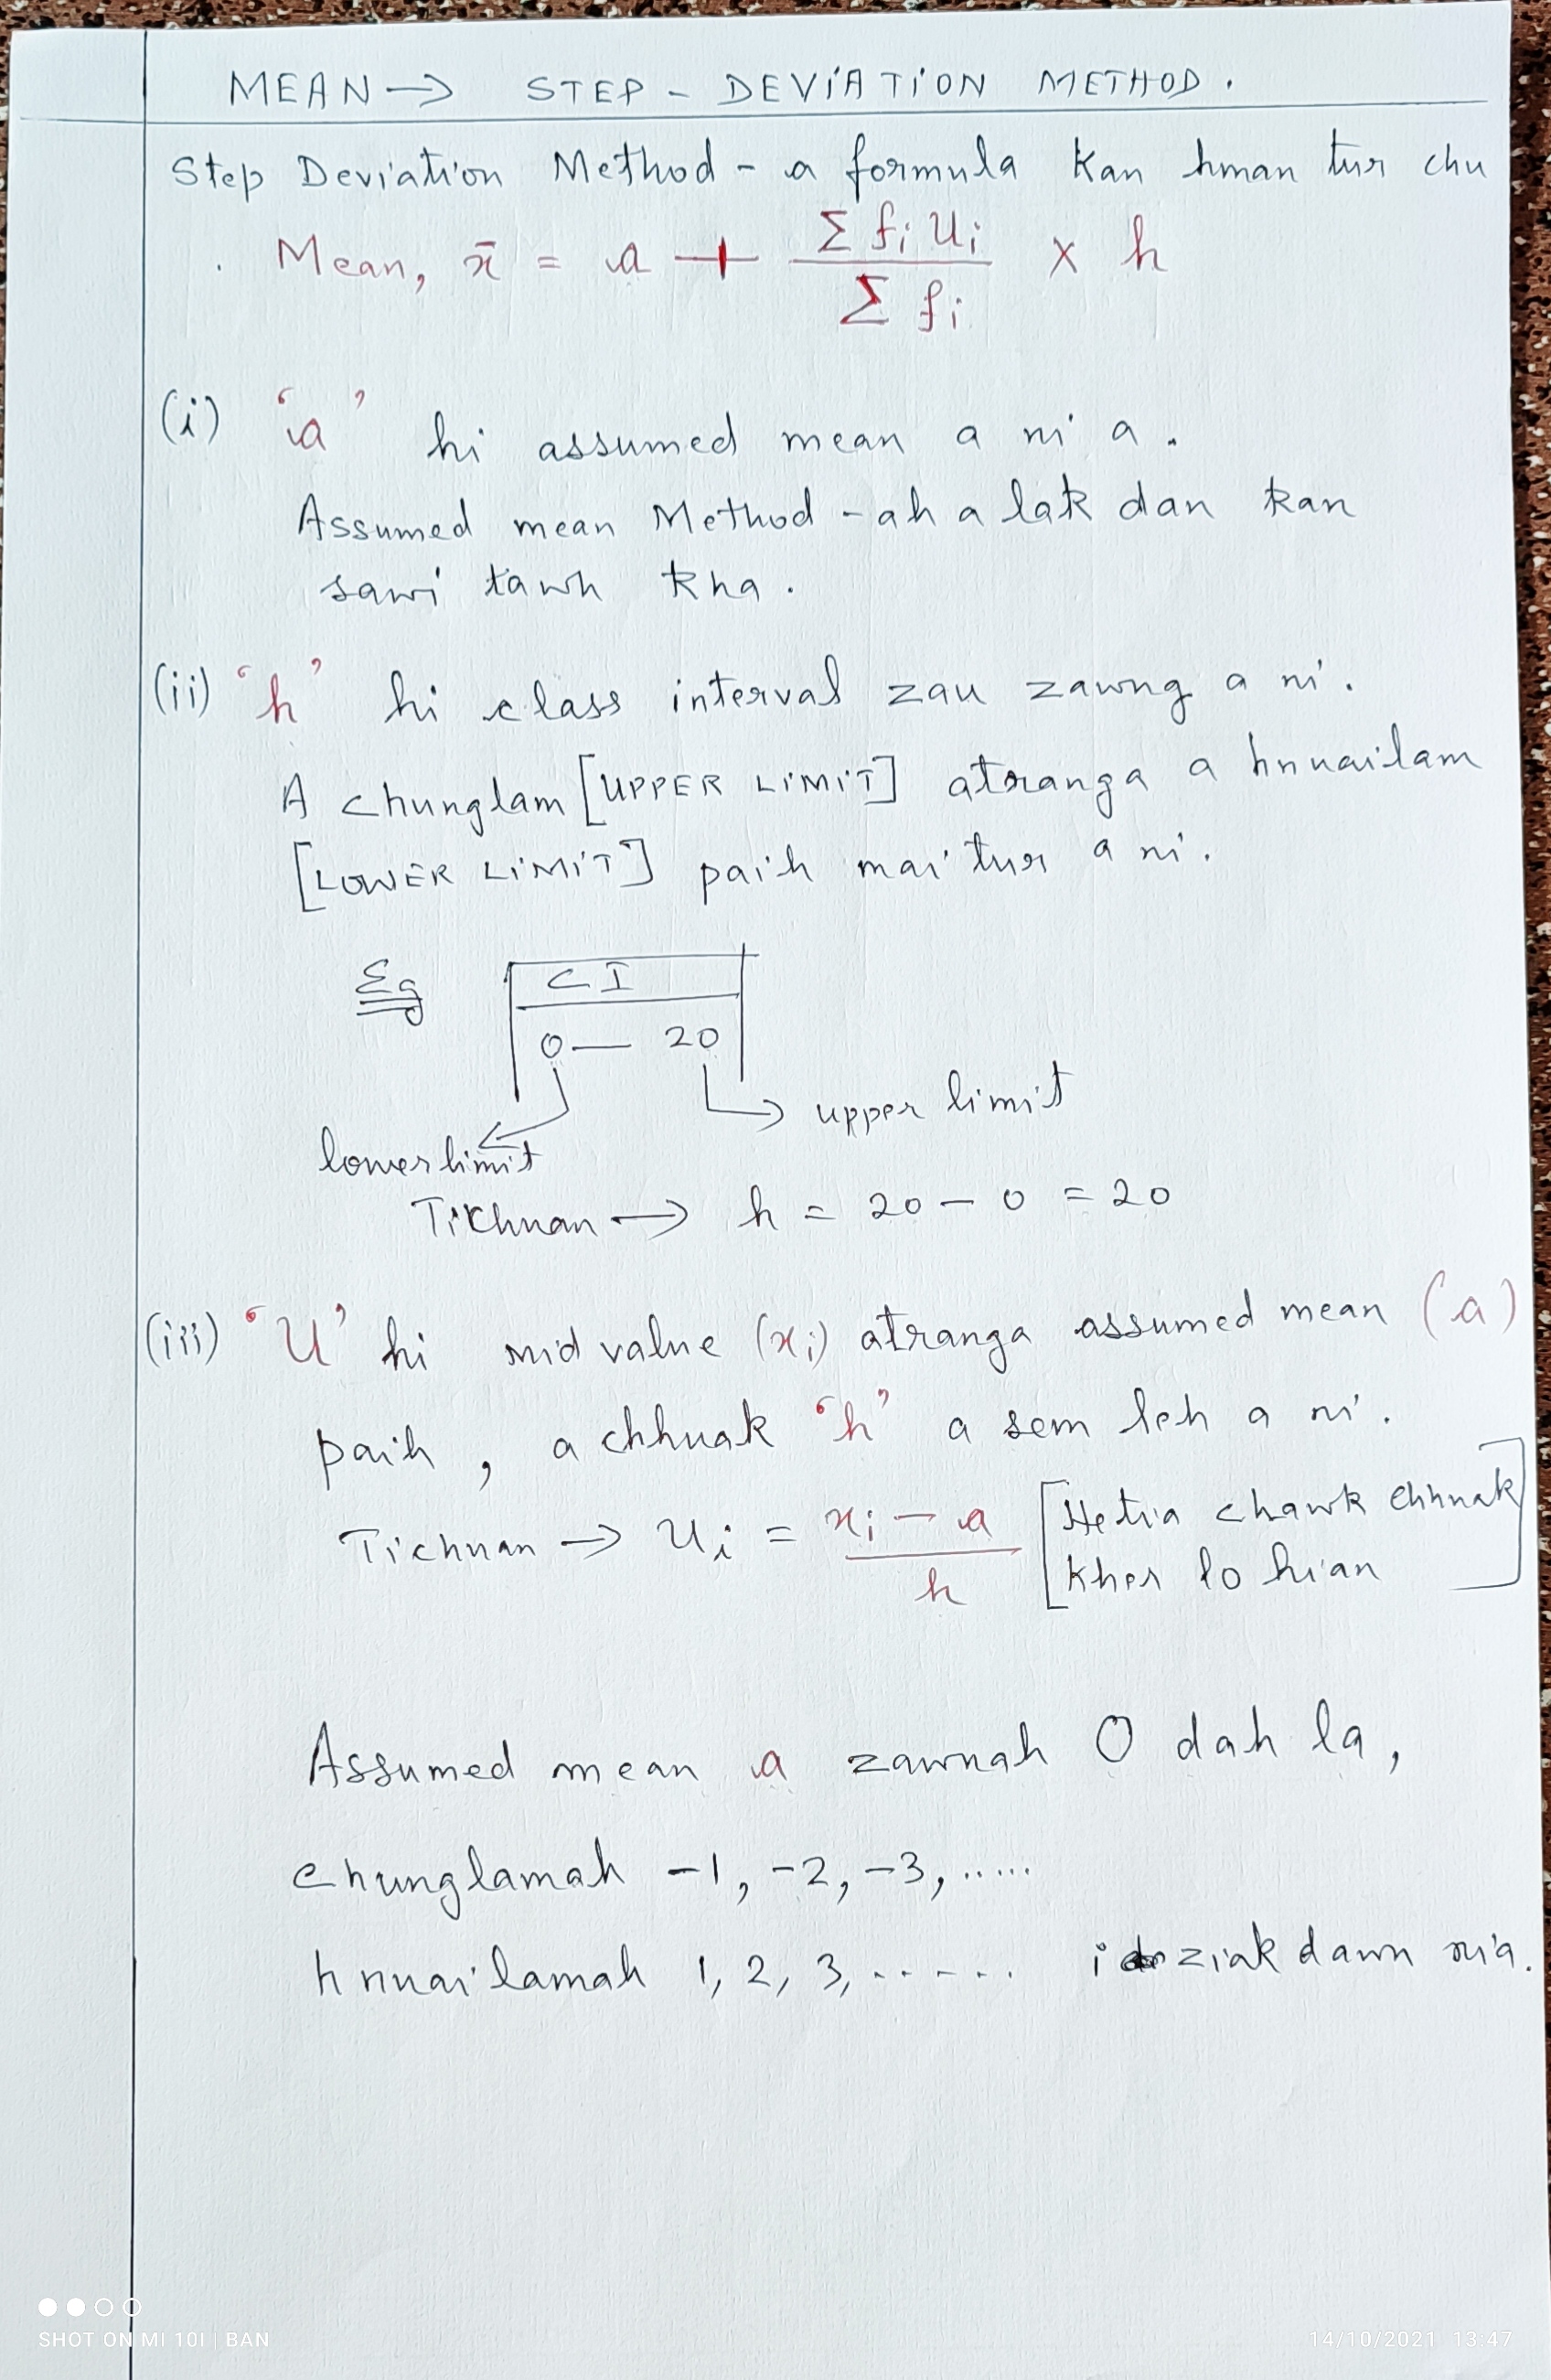 MEAN → STEP - DEVIATION METHOD.
Step Deviation Method - a formula kan hman tur chu
Mean, x̄ = a + Σ fi Ui / Σ fi × h
(i) 'a' hi assumed mean a ni a.
Assumed mean Method - ah a lak dan kan
sawi tawh kha.
(ii) 'h' hi class interval zau zawng a ni.
A chunglam [UPPER LIMIT] atranga a hnuailam
[LOWER LIMIT] paih mai tur a ni.
Eg CI
0 — 20
upper limit
lower limit
Tichuan → h = 20 - 0 = 20
(iii) 'U' hi mid value (xi) atranga assumed mean (a)
paih, a chhuak 'h' a sem leh a ni.
Tichuan → Ui = xi - a / h [Hetia chawk chhuak
kher lo hian]
Assumed mean a zawnah 0 dah la,
chunglamah -1, -2, -3, .....
hnuailamah 1, 2, 3, ..... i ziak dawn nia.
SHOT ON MI 10I | BAN
14/10/2021 13:47